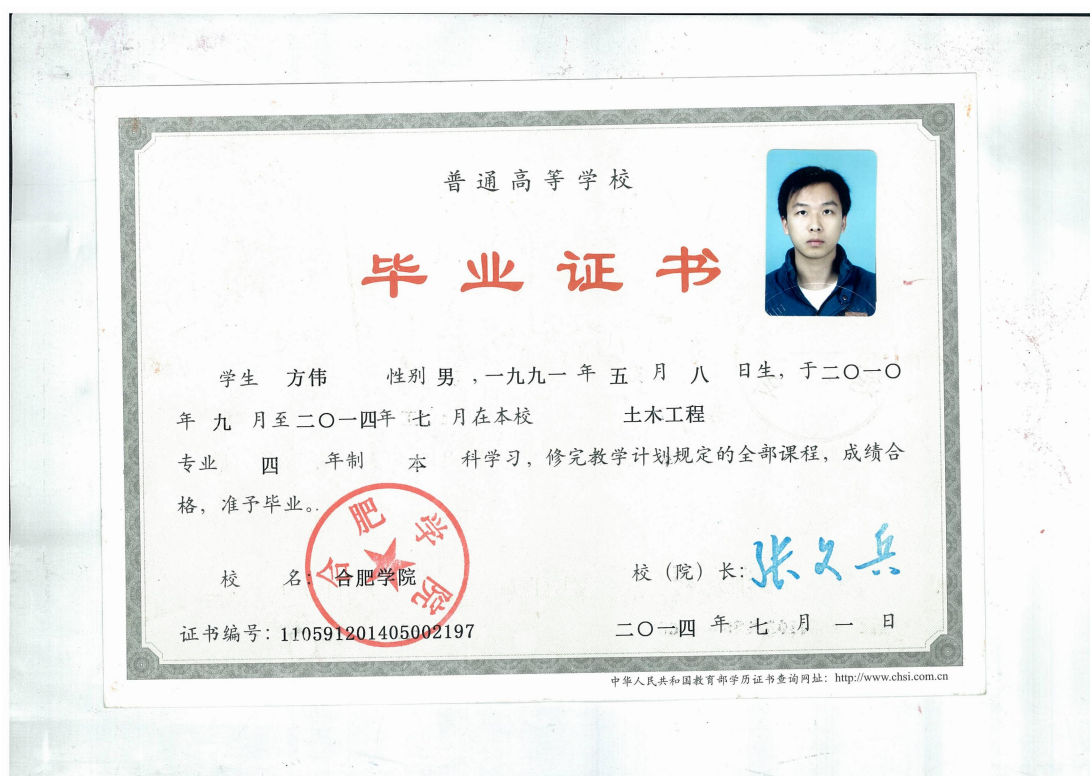 普通高等学校
毕业证书
学生 方伟 性别 男 ,一九九一 年 五 月 八 日生,于二〇一〇
年 九 月至二〇一四年 七 月在本校 土木工程
专业 四 年制 本 科学习,修完教学计划规定的全部课程,成绩合
格,准予毕业。
合肥学院
校 名: 合肥学院
校(院)长: 张久兵
证书编号: 110591201405002197
二〇一四 年 七 月 一 日
中华人民共和国教育部学历证书查询网址: http://www.chsi.com.cn